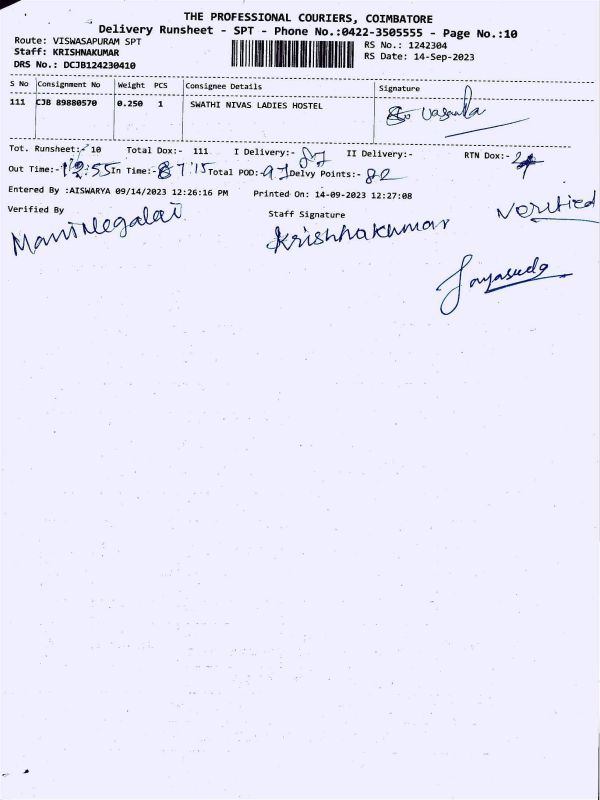 THE PROFESSIONAL COURIERS, COIMBATORE
Delivery Runsheet - SPT - Phone No.:0422-3505555 - Page No.:10
Route: VISWASAPURAM SPT
RS No.: 1242304
Staff: KRISHNAKUMAR
RS Date: 14-Sep-2023
DRS No.: DCJB124230410
S No Consignment No Weight PCS Consignee Details Signature
111 CJB 89880570 0.250 1 SWATHI NIVAS LADIES HOSTEL
Vasantha
Tot. Runsheet:- 10 Total Dox:- 111 I Delivery:- 87 II Delivery:- RTN Dox:-
Out Time:- 12:55 In Time:- 7:15 Total POD:- Delvy Points:- 82
Entered By :AISWARYA 09/14/2023 12:26:16 PM Printed On: 14-09-2023 12:27:08
Verified By Staff Signature Verified
Manimegalai Krishnakumar
Jayasuda